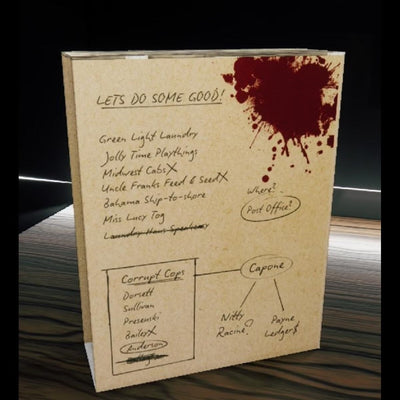 LETS DO SOME GOOD!
Green Light Laundry
Jolly Time Playthings
Midwest Cabs X
Uncle Franks Feed & Seed X
Bahama Ship-to-shore
Miss Lucy Tog
Where?
Post Office?
Corrupt Cops
Dorsett
Sullivan
Presenski
Bailey X
Anderson
Capone
Nitty
Racine?
Payne
Ledger$